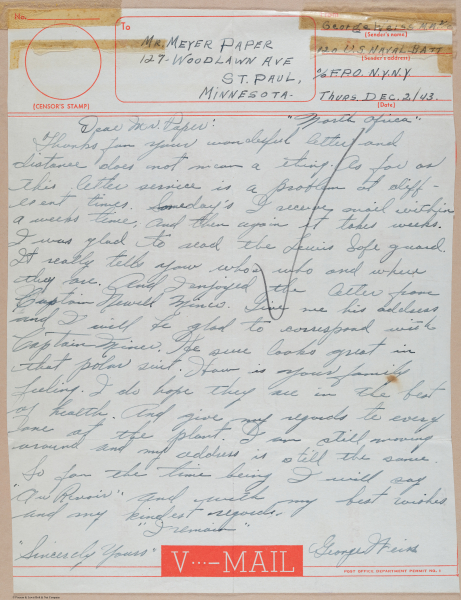 No.
To
MR. MEYER PAPER
127-WOODLAWN AVE
ST. PAUL,
MINNESOTA-
(CENSOR'S STAMP)
George Weiss
(Sender's name)
120 U.S. NAVAL BATT
(Sender's address)
c/o F.P.O. N.Y. N.Y.
THURS. DEC. 2/43.
(Date)
"North Africa"
Dear Mr. Paper:
Thanks for your wonderful letter and
distance does not mean a thing. As far as
this letter service is a problem at diff-
erent times. Someday's I receive mail within
a weeks time, and then again it takes weeks.
I was glad to read the Lewis Safe guard.
It really tells you who's who and where
they are. And I enjoyed the letter from
Captain Newell Miner. Give me his address
and I will be glad to correspond with
Captain Miner. He sure looks great in
that polar suit. How is your family
feeling. I do hope they are in the best
of health. And give my regards to every
one at the plant. I am still moving
around and my address is still the same.
So for the time being I will say
"Au Revoir" and with my best wishes
and my kindest regards.
"I remain"
"Sincerely Yours"
George Weiss
V···—MAIL
POST OFFICE DEPARTMENT PERMIT NO.